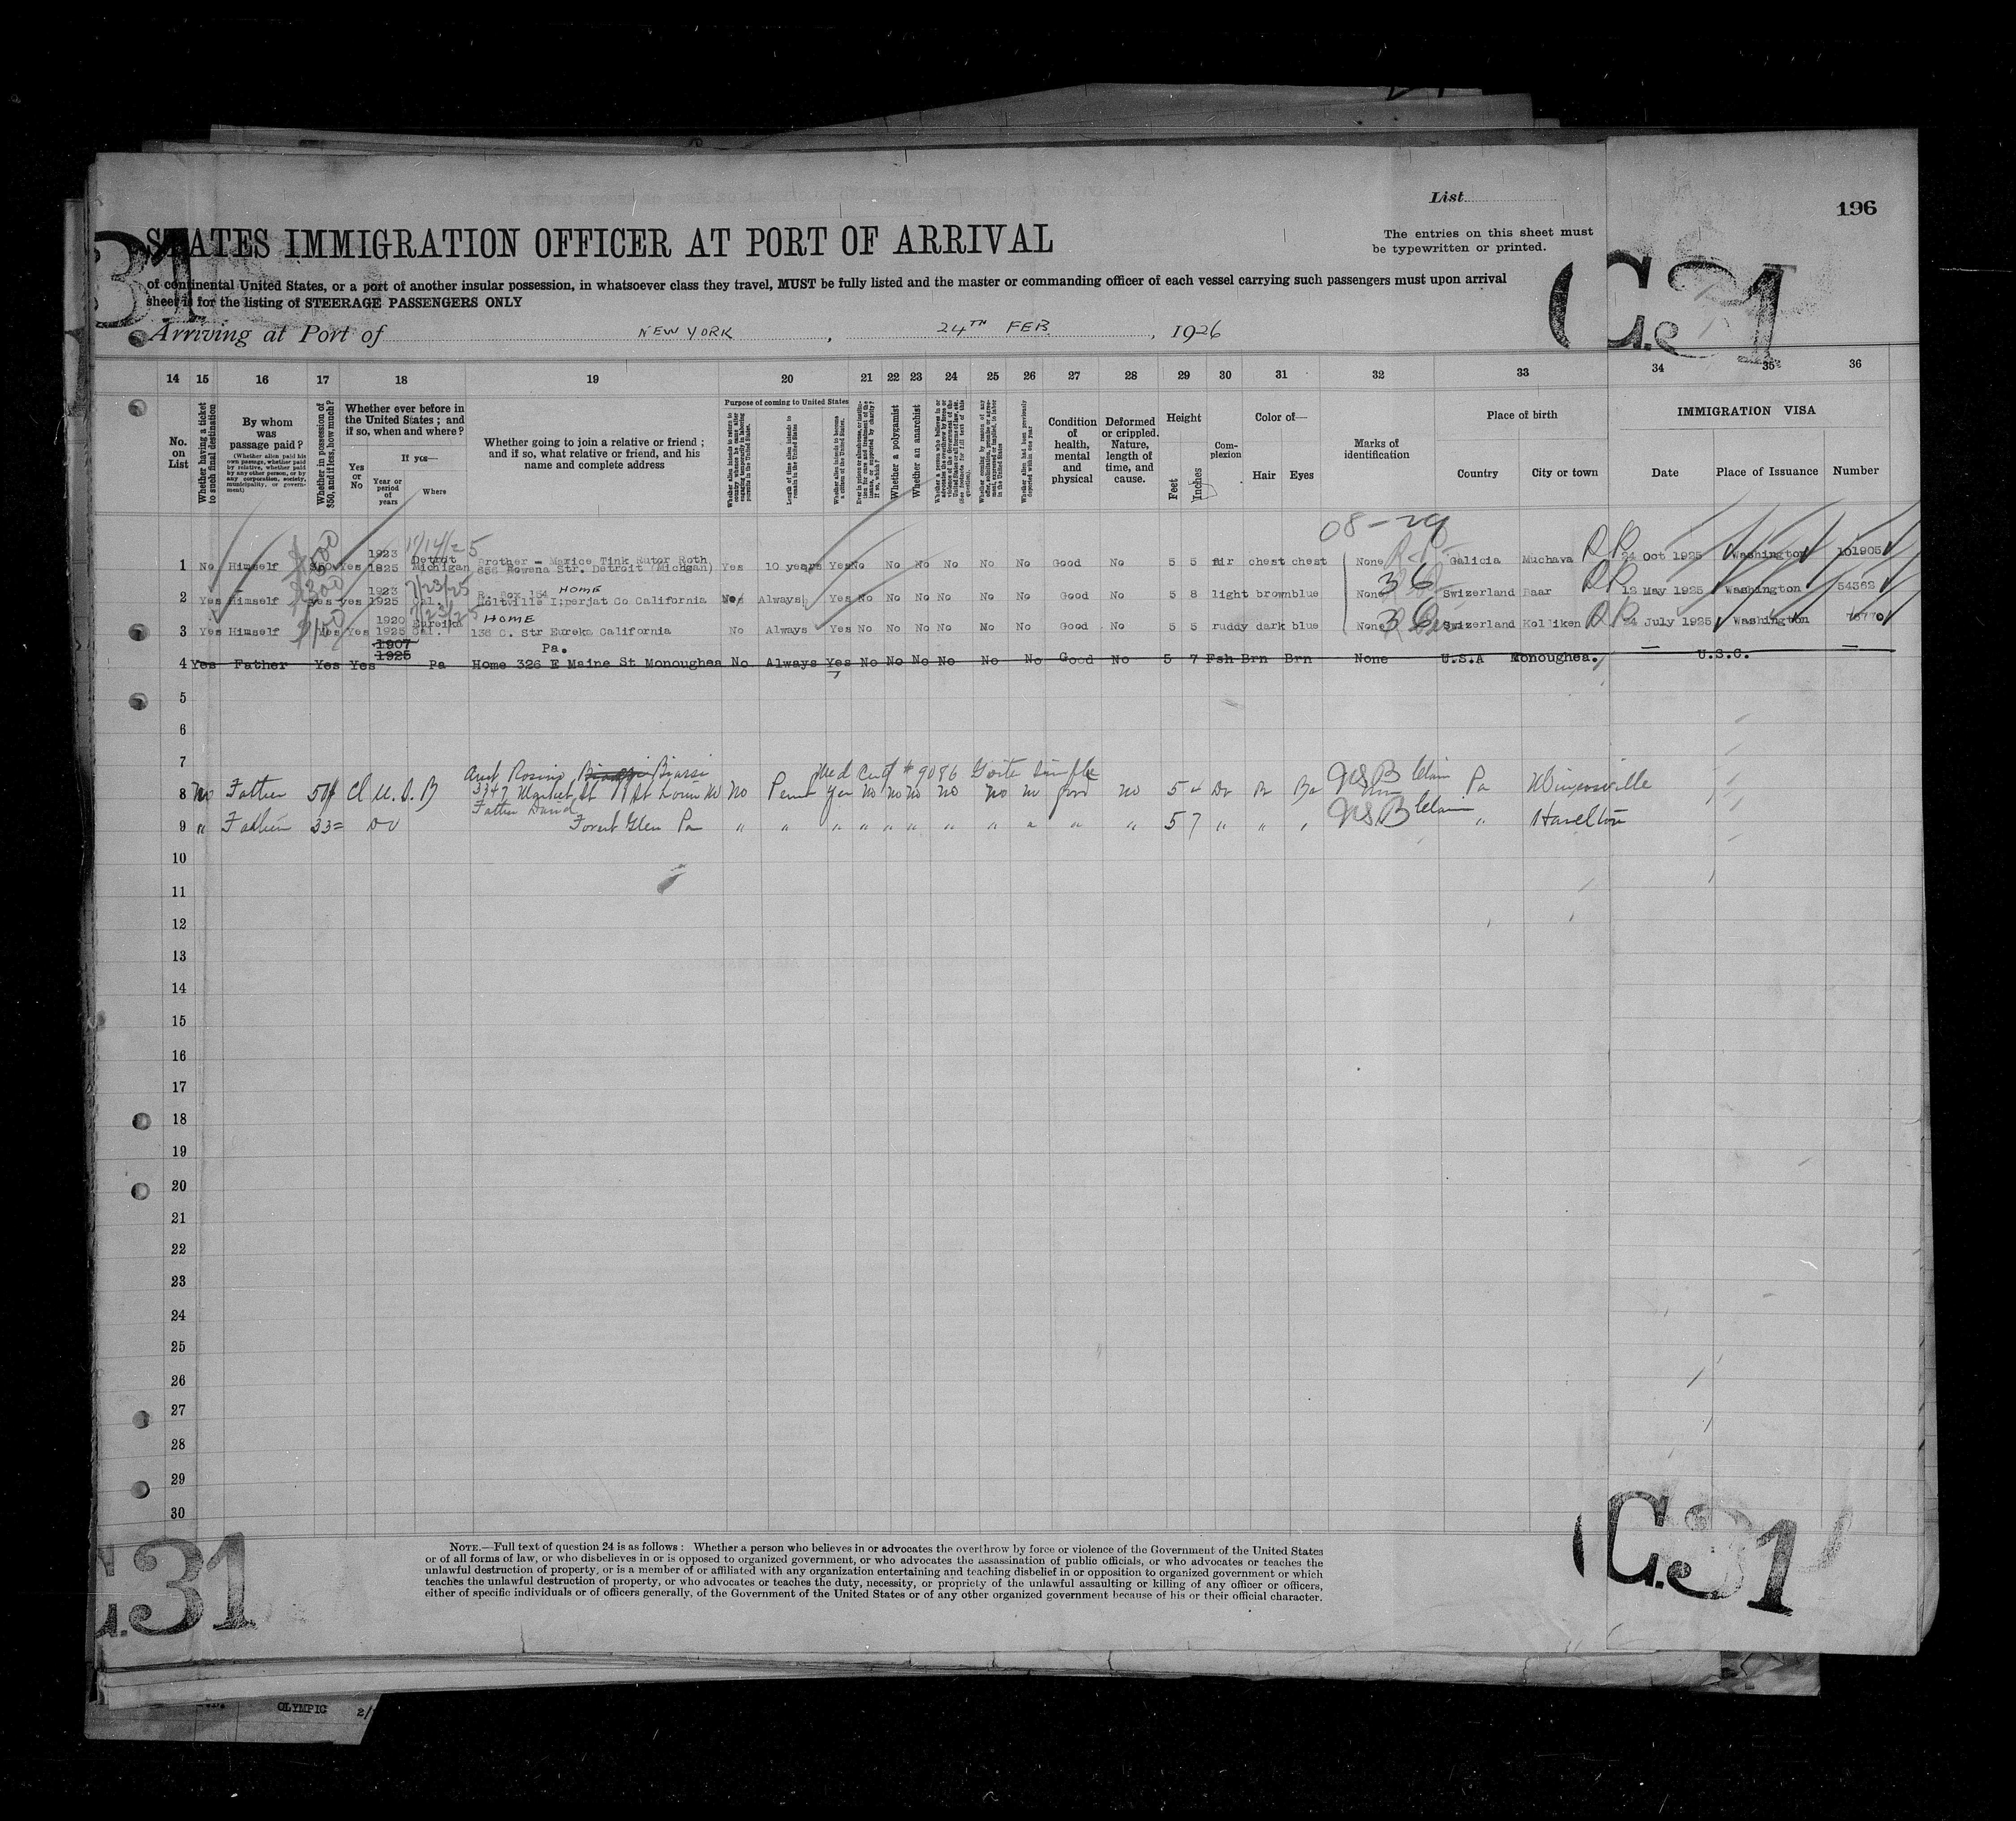 List
196
STATES IMMIGRATION OFFICER AT PORT OF ARRIVAL
The entries on this sheet must
be typewritten or printed.
of continental United States, or a port of another insular possession, in whatsoever class they travel, MUST be fully listed and the master or commanding officer of each vessel carrying such passengers must upon arrival
sheet is for the listing of STEERAGE PASSENGERS ONLY
31
C.31
Arriving at Port of NEW YORK, 24TH FEB, 1926
14 15 16 17 18 19 20 21 22 23 24 25 26 27 28 29 30 31 32 33 34 35 36
No. on List
Whether having a ticket to such final destination
By whom was passage paid?
(Whether alien paid his own passage, whether paid by relative, whether paid by any other person, or by any corporation, society, municipality, or government)
Whether in possession of $50, and if less, how much?
Whether ever before in the United States; and if so, when and where?
Yes or No
If yes—
Year or period of years
Where
Whether going to join a relative or friend; and if so, what relative or friend, and his name and complete address
Purpose of coming to United States
Length of time alien intends to remain in the United States
Whether alien intends to become a citizen of the United States
Whether a polygamist
Whether an anarchist
Condition of health, mental and physical
Deformed or crippled. Nature, length of time, and cause.
Height
Feet
Inches
Complexion
Color of—
Hair Eyes
Marks of identification
Place of birth
Country
City or town
IMMIGRATION VISA
Date
Place of Issuance
Number
08-29
1923 Detroit
1 No Himself Yes 1925 Michigan Brother - Maxice Tink Rutor Roth
856 Rowena Str. Detroit (Michgan) Yes 10 years Yes No No No No No No No Good No 5 5 fair chest chest None Galicia Muchava 24 Oct 1925 Washington 101905
1923 R. Box 154 HOME
2 Yes Himself Yes yes 1925 Cal. Holtville I;perjat Co California No Always Yes No No No No No No Good No 5 8 light brown blue None Swizerland Baar 12 May 1925 Washington 54362
1920 Eureika HOME
3 Yes Himself Yes Yes 1925 Cal. 136 C. Str Eureka California No Always Yes No No No No No No Good No 5 5 ruddy dark blue None Swizerland Kolliken 24 July 1925 Washington
1907 Pa.
1925
4 Yes Father Yes Yes Pa Home 326 E Maine St Monoughea No Always Yes No No No No No No Good No 5 7 Fsh Brn Brn None U.S.A Monoughea. — U.S.C. —
5
6
7
Aunt Rosina Biassi Med Cert # 9086 Goite Simple
8 No Father 50 Cl U.S.B 3347 Market St St Louis Mo No Perm Yes No No No No No No Good No 5 4 Dr Br Br USB Claim Pa
Father David
9 " Father 33 = Do Forest Glen Pa " " " " " " " " " " " 5 7 " " " USB Claim " Hazelton
10
11
12
13
14
15
16
17
18
19
20
21
22
23
24
25
26
27
28
29
30
NOTE.—Full text of question 24 is as follows: Whether a person who believes in or advocates the overthrow by force or violence of the Government of the United States
or of all forms of law, or who disbelieves in or is opposed to organized government, or who advocates the assassination of public officials, or who advocates or teaches the
unlawful destruction of property, or is a member of or affiliated with any organization entertaining and teaching disbelief in or opposition to organized government or which
teaches the unlawful destruction of property, or who advocates or teaches the duty, necessity, or propriety of the unlawful assaulting or killing of any officer or officers,
either of specific individuals or of officers generally, of the Government of the United States or of any other organized government because of his or their official character.
C.31
C.31
OLYMPIC 2/